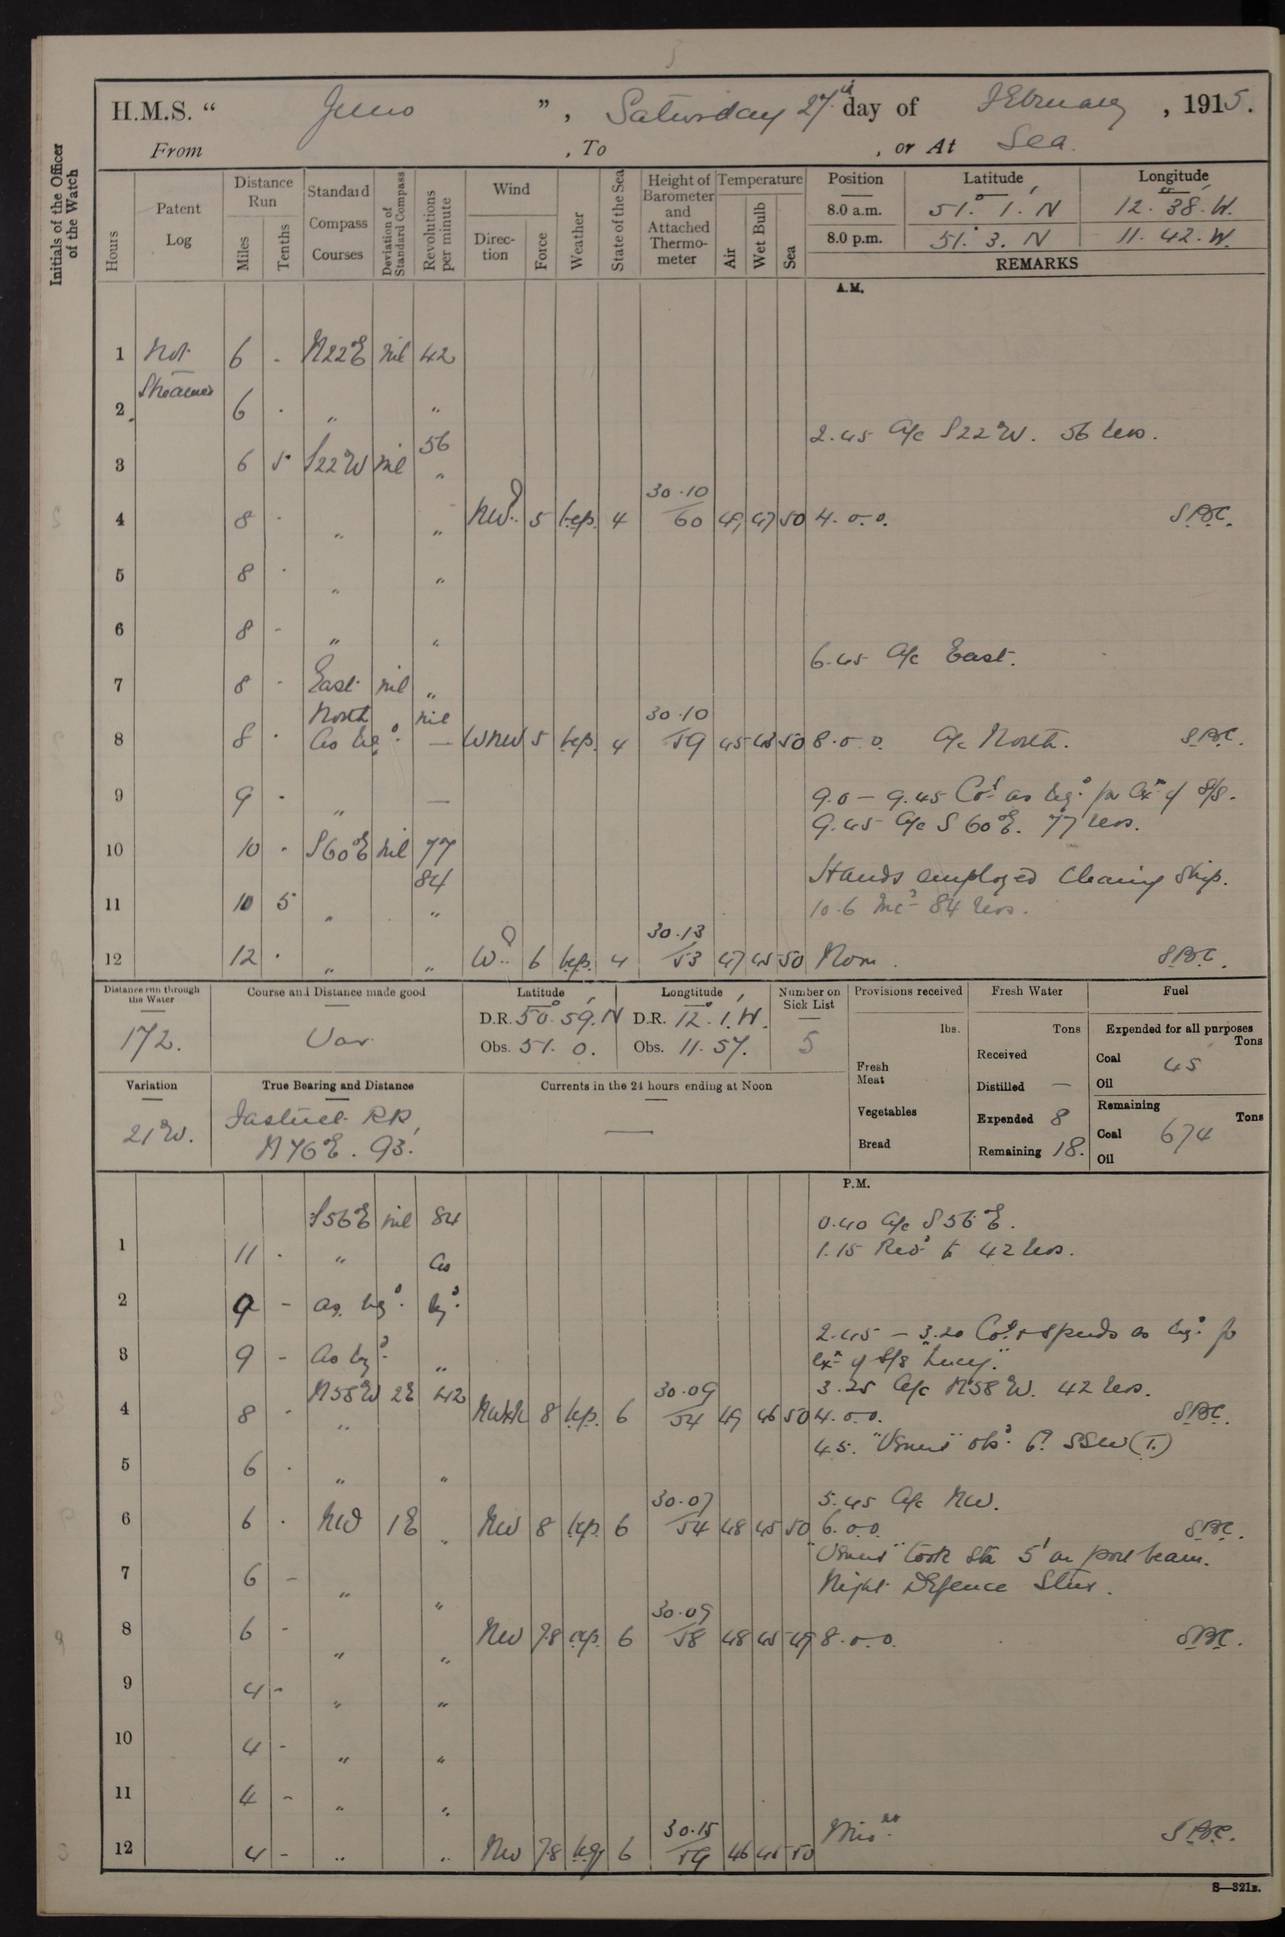 H.M.S. “ Juno ”, Saturday 27th day of February, 1915.
From , To , or At Sea.
Initials of the Officer of the Watch
Hours
Patent Log
Distance Run
Miles
Tenths
Standard Compass Courses
Deviation of Standard Compass
Revolutions per minute
Wind
Direction
Force
Weather
State of the Sea
Height of Barometer and Attached Thermometer
Temperature
Air
Wet Bulb
Sea
Position Latitude Longitude
8.0 a.m. 51° 1' N 12° 38' W.
8.0 p.m. 51° 3. N 11. 42. W.
REMARKS
A.M.
1 Not 6 - N22°E nil 42
Streamed
2 6 . „ „
2.45 A/c S22°W. 56 revs.
56
3 6 5 S22°W nil „
30.10
4 8 . „ „ 5 bcp. 4 60 49 47 50 4.0.0. SBC.
5 8 . „ „
6 8 - „ „
6.45 A/c East.
7 8 - East nil „
North nil 30.10
8 8 . as req? — WNW 5 bcp. 4 59 45 43 50 8.0.0. A/c North. SBC.
9 9 - „ — 9.0 – 9.45 Cos as req? for Exn of S/S.
9.45 A/c S 60°E. 77 revs.
10 10 . S60°E nil 77
84 Hands employed cleaning Ship.
11 10 5 „ „ 10.6 Incd 84 revs.
30.13
12 12 . „ „ 6 bcp. 4 53 47 45 50 Noon. SBC.
Distance run through the Water
172.
Course and Distance made good
Var
Latitude
D.R. 50° 59' N
Obs. 51. 0.
Longtitude
D.R. 12° 1' W.
Obs. 11. 57.
Number on Sick List
5
Provisions received
lbs.
Fresh Meat
Vegetables
Bread
Fresh Water
Tons
Received
Distilled —
Expended 8
Remaining 18.
Fuel
Expended for all purposes
Tons
Coal 45
Oil
Remaining
Tons
Coal 674
Oil
Variation
21°W.
True Bearing and Distance
Fastnet RR,
N76°E. 93.
Currents in the 24 hours ending at Noon
—
P.M.
S56°E nil 84 0.40 A/c S 56°E.
1 11 . „ as 1.15 Redd to 42 revs.
2 9 - as reqd. reqd.
2.45 – 3.20 Cos & speeds as reqd. for
3 9 - as reqd. „ Exn of S/S "Lucy".
N58°W 2E 42 30.09 3.25 A/c N58°W. 42 revs.
4 8 . „ NWxN 8 bcp. 6 54 49 46 50 4.0.0. SBC.
4.5. "Venus" obsd. 6' SSW (T.)
5 6 . „ „
30.07 5.45 A/c NW.
6 6 . NW 1E „ NW 8 bcp. 6 54 48 45 50 6.0.0. SBC.
"Venus" took stn 5' on port beam.
7 6 - „ „ Night Defence Stns.
30.09
8 6 - „ „ NW 7.8 6 58 48 45 49 8.0.0. SBC.
9 4 - „ „
10 4 - „ „
11 4 - „ „
30.15
12 4 - „ „ NW 7.8 6 59 46 45 50 SBC.
S—321B.